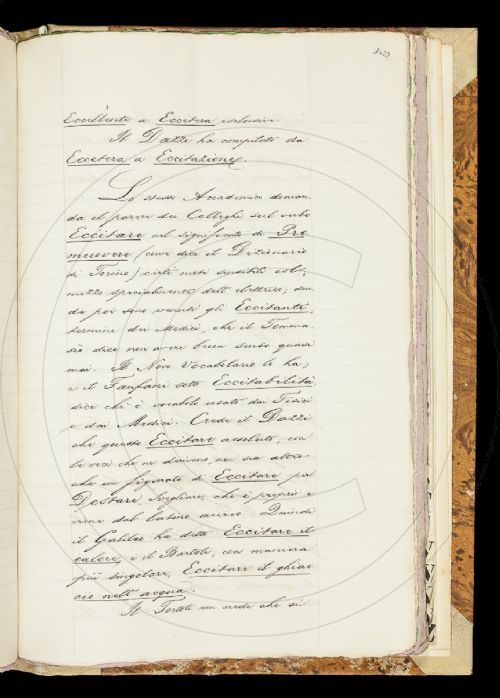 Eccellente a Eccetera esclusive.
Il Dazzi ha compilato da
Eccetera a Eccitazione.
Lo stesso Accademico doman-
da il parere dei Colleghi sul verbo
Eccitare nel significato di Pro-
muovere (come dice il Dizionario
di Torino) certi moti speciali col
mezzo specialmente dell'elettrico; don-
de poi sono venuti gli Eccitanti,
termine dei Medici, che il Tomma-
sèo dice non avere buon senso quasi
mai. Il Novo Vocabolario lo ha;
e il Fanfani sotto Eccitabilità
dice ch'è vocabolo usato dai Fisici
e dai Medici. Crede il Dazzi
che questo Eccitare assoluto, con
le voci che ne derivano, non sia altro
che un figurato di Eccitare, per
Destare, Svegliare, che è proprio e
viene dal latino aureo. Quindi
il Galileo ha detto Eccitare il
calore, e il Bartoli, con maniera
più singolare, Eccitare il ghiac-
cio nell'acqua.
Il Tortoli non crede che si